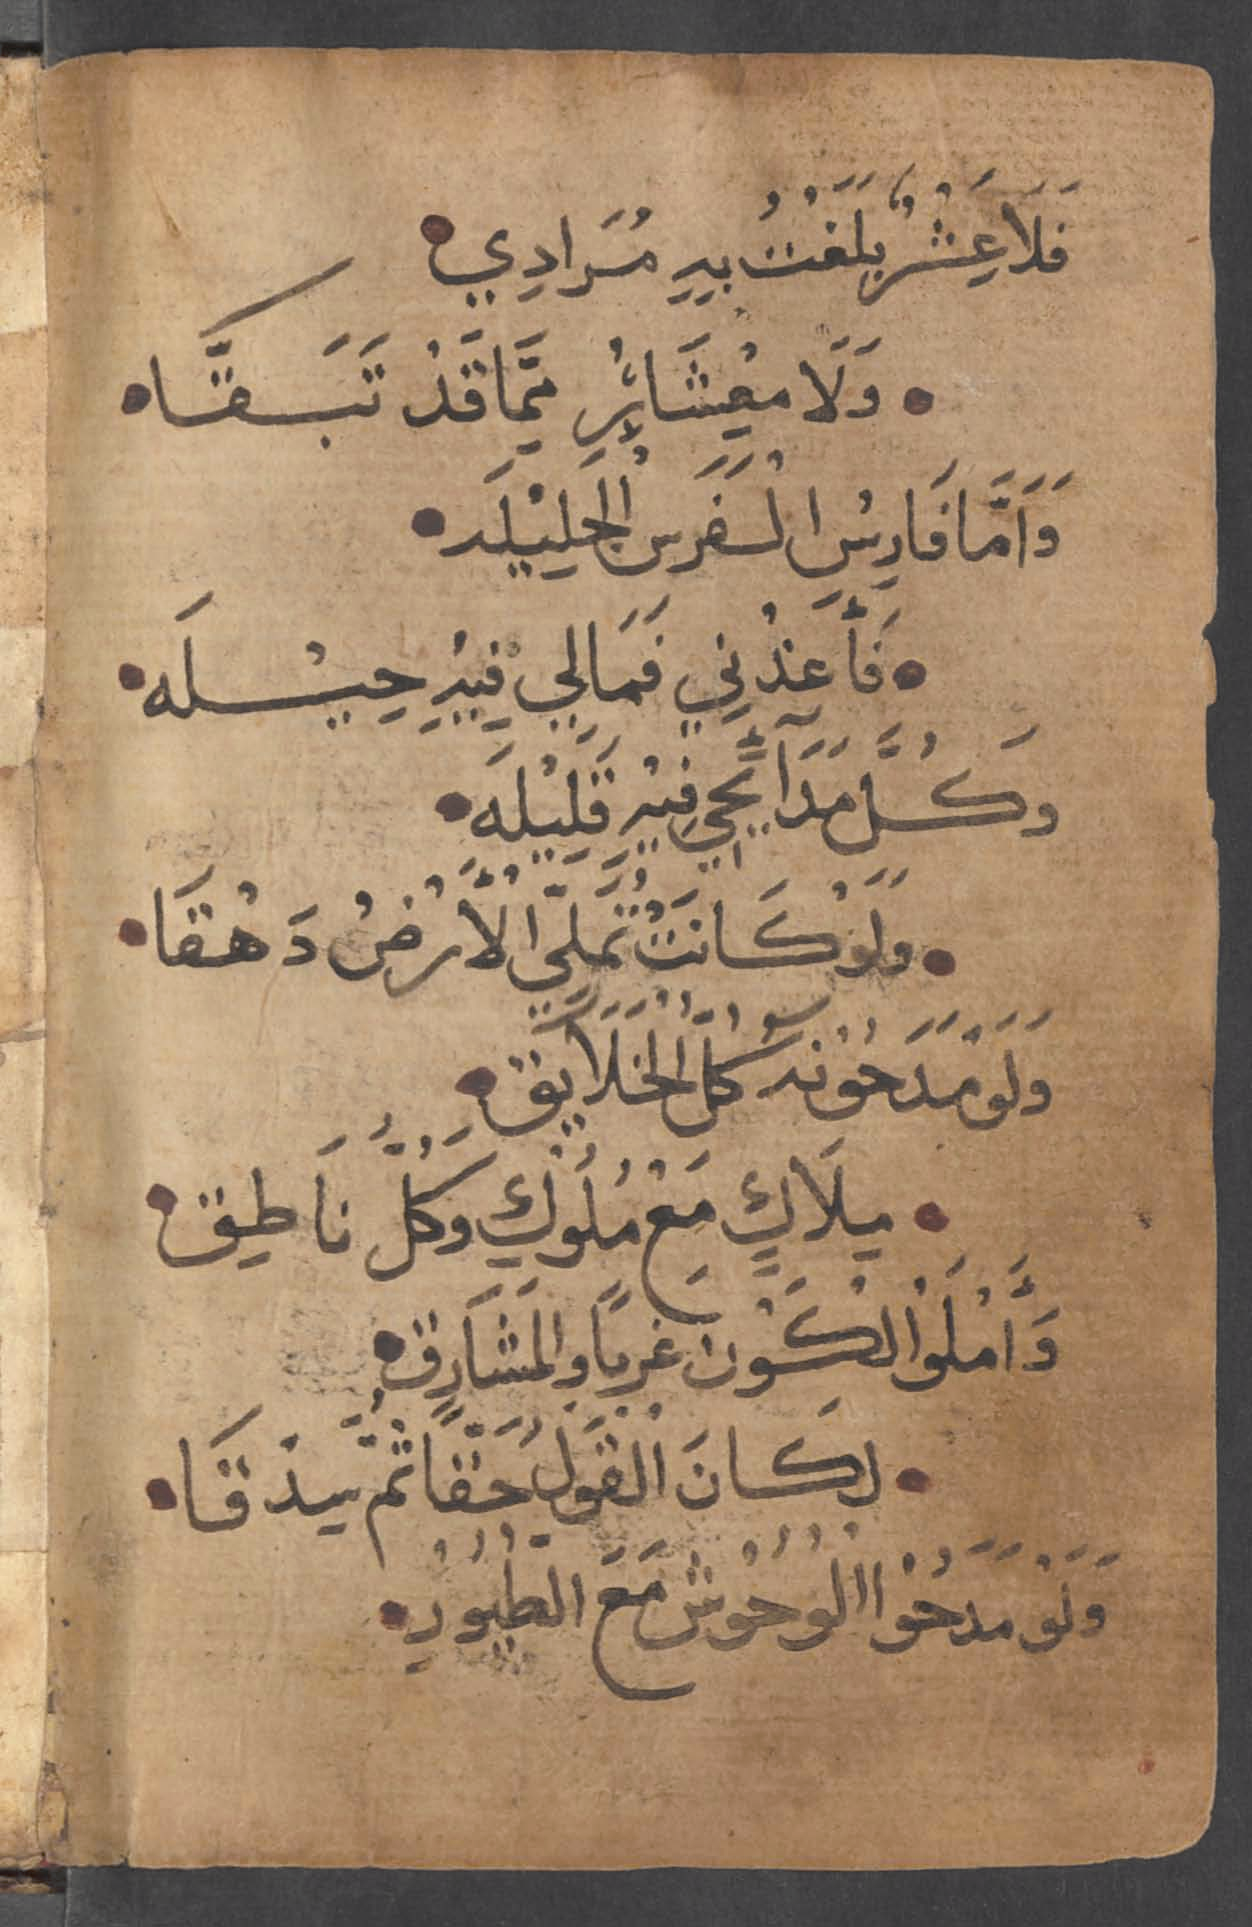 فَلَا عِشْرٌ بَلَغْتُ بِهِ مُرَادِي
وَلَا مِعْشَائِرِ مِمَّا قَدْ تَبَقَّا
وَاَمَّا فَارِسُ الْفَرَسِ الْجَلِيْلَه
فَأَعِذْنِي فَمَالِي فِيْهِ حِيْلَه
وَكُلَّ مَدَآئِحِي فِيْهِ قَلِيْلَه
وَلَوْ كَانَتْ تُمَلِّي الْأَرْضُ دَهْقَا
وَلَوْ مَدَحُوْنَهُ كُلُّ الْخَلَايِق
مِلَاكٍ مَعْ مُلُوْكٍ وَكُلُّ نَاطِق
وَأَمْلَوْا الْكَوْن غَربًا وَالمَشَارِق
لِكَانَ الْقَوْلُ حَقًّا ثُمَّ سِدْقَا
وَلَوْ مَدَحُوْا الْوُحُوْش مَعَ الطُيُوْرِ